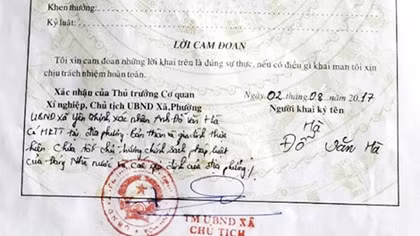 Khen thưởng:
Kỷ luật:
LỜI CAM ĐOAN
Tôi xin cam đoan những lời khai trên là đúng sự thực, nếu có điều gì khai man tôi xin
chịu trách nhiệm hoàn toàn.
Xác nhận của Thủ trưởng Cơ quan
Xí nghiệp, Chủ tịch UBND Xã, Phường
Ngày 02 tháng 08 20.17
Người khai ký tên
UBND xã Yên Thịnh xác nhận Anh Đỗ Văn Hà
Có HKTT tại địa phương. Bản thân và gia đình thực
hiện chấp tốt chủ trương chính sách pháp luật
của Đảng Nhà nước và các qui định của địa phương
Hà
Đỗ Văn Hà
TM UBND XÃ
CHỦ TỊCH